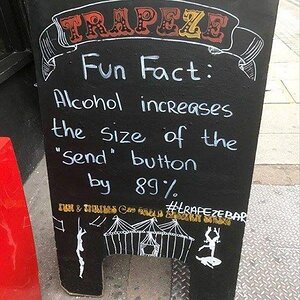 TRAPEZE
Fun Fact:
Alcohol increases
the size of the
"send" button
by 89%
#TRAPEZEBAR